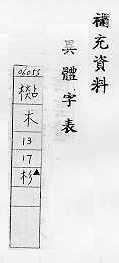 補充資料
異體字表
06055
檆
木
13
17
杉▲